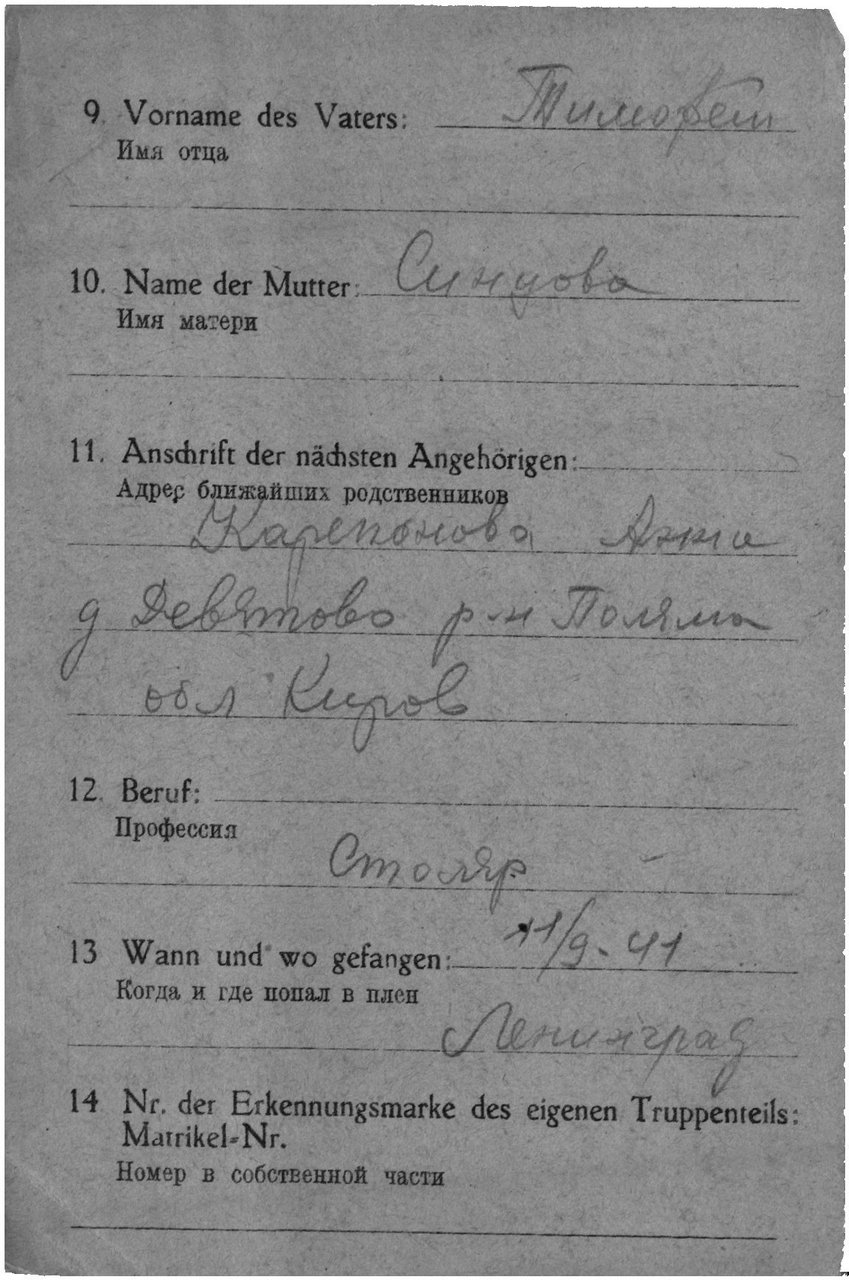 9. Vorname des Vaters: Тимофей
Имя отца
10. Name der Mutter: Синцова
Имя матери
11. Anschrift der nächsten Angehörigen:
Адрес ближайших родственников
Карепанова Анна
д Девятово р-н Поляма
обл Киров
12. Beruf:
Профессия
Столяр
13 Wann und wo gefangen: 11/9-41
Когда и где попал в плен
Ленинград
14 Nr. der Erkennungsmarke des eigenen Truppenteils:
Matrikel-Nr.
Номер в собственной части